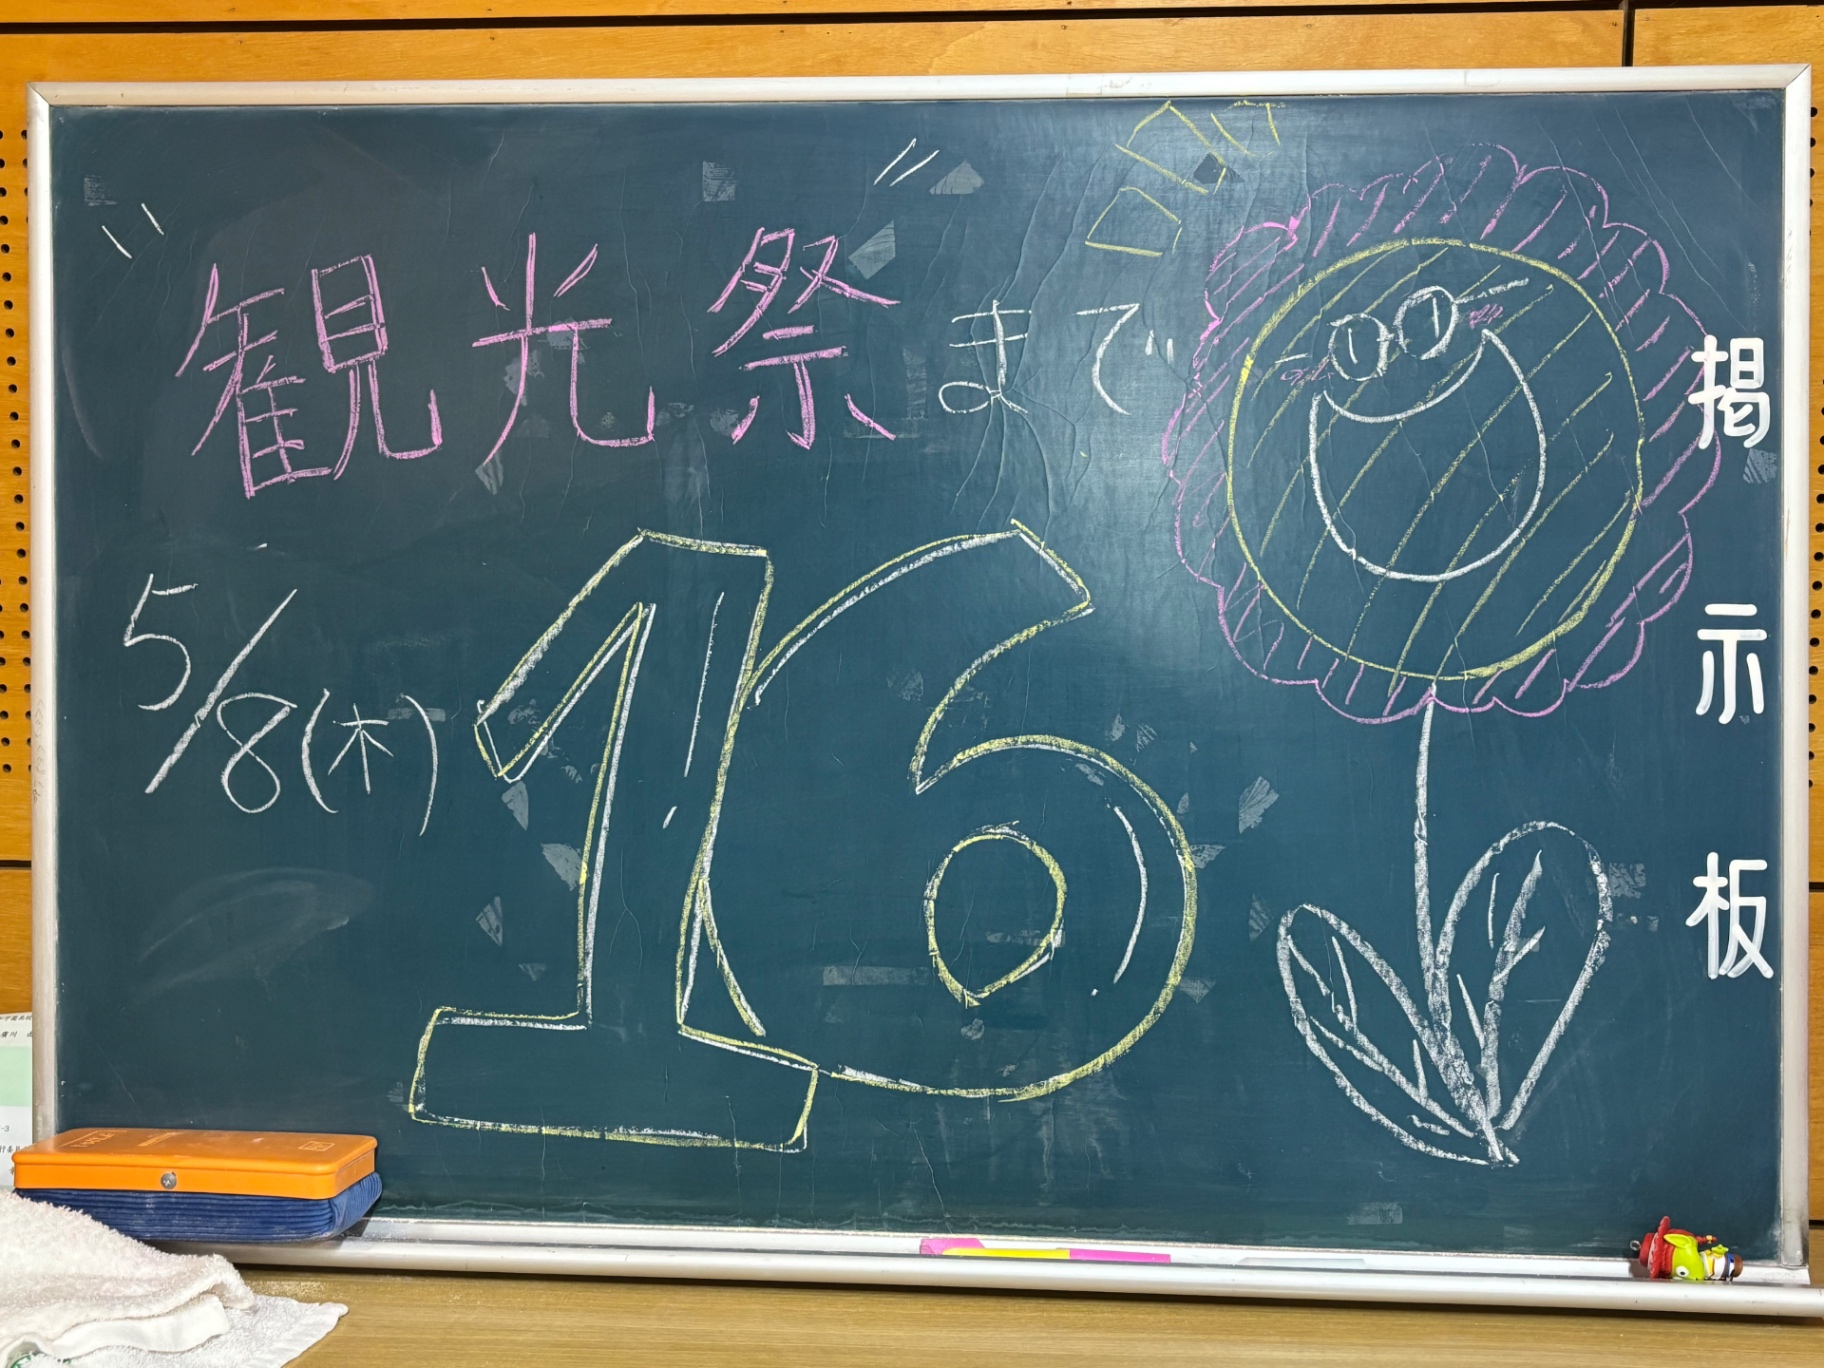 観光祭まで
5/8(木)
16
掲示板